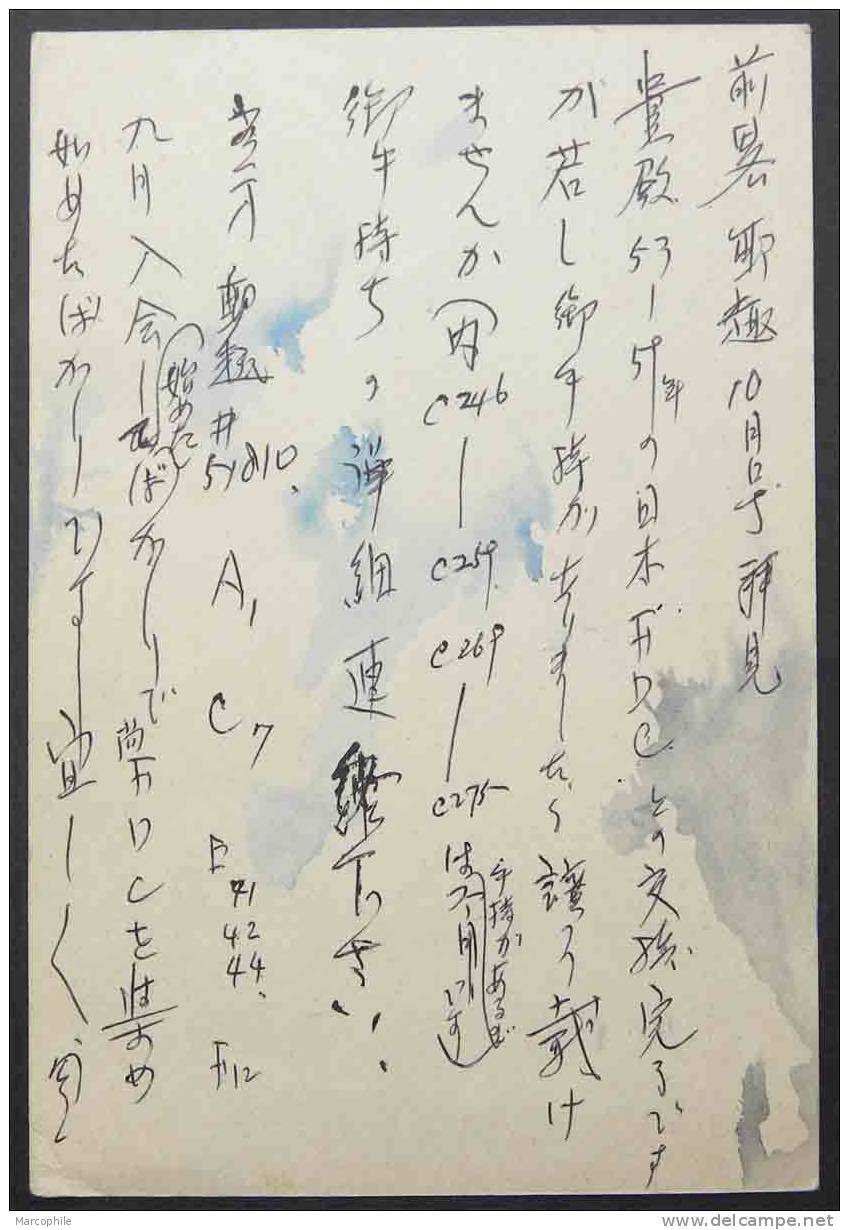 前略 郵趣10月号拝見
貴殿53―59年の日本FDCとの交換完了です
が若し御手持がありましたら譲り戴け
ませんか(内C246―C259 C269―C275は不用です
手持があるば
御手持ちの詳細連絡下さい、
郵趣# 51810、A1 C7 F 41 42 44、F12
九月入会し(始めた)ばかりで尚FDCを集め
始めたばかりですし宜しく
Marcophile
www.delcampe.net